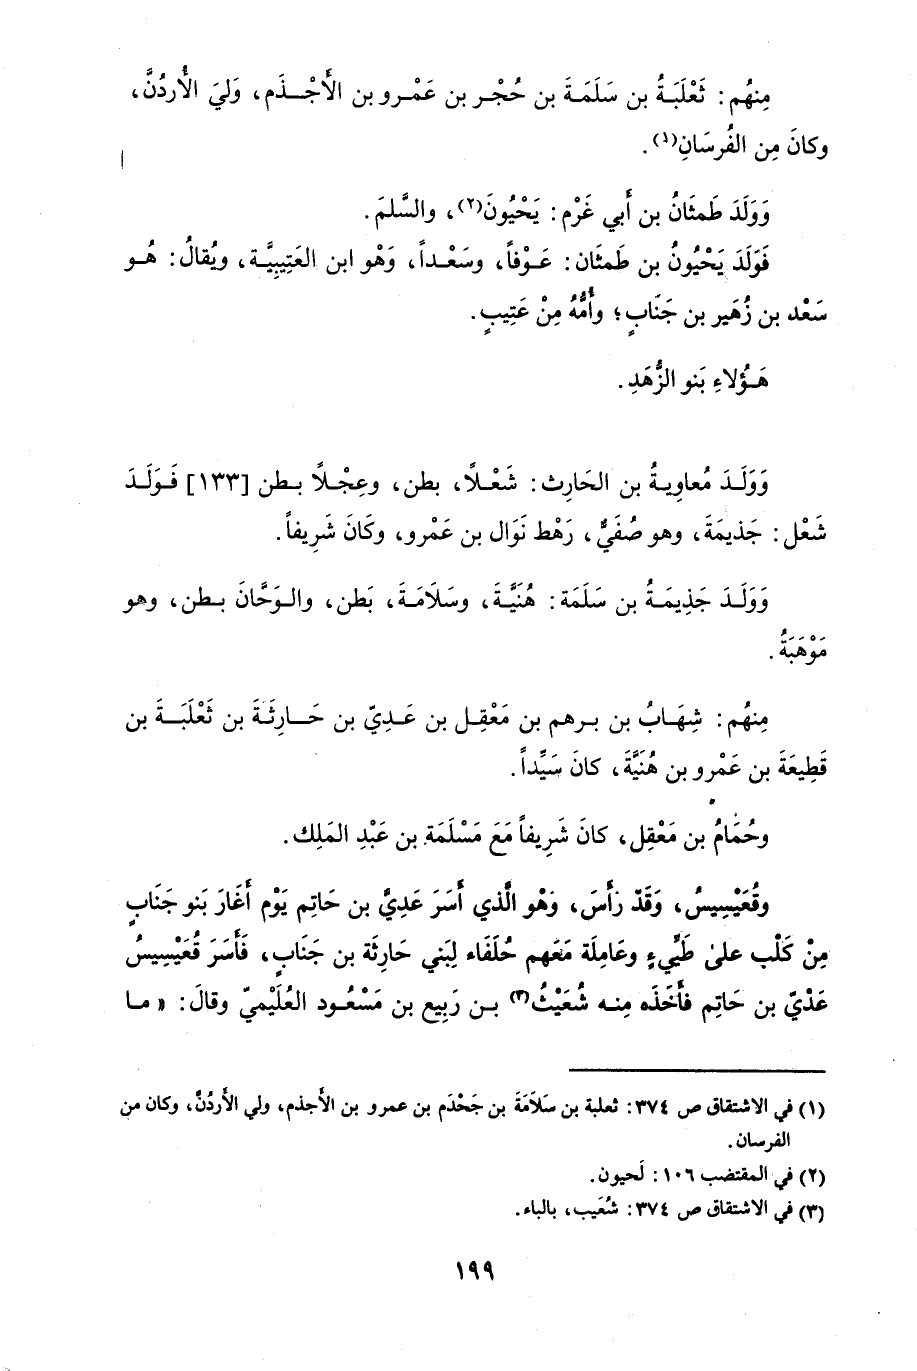 مِنهُم: ثَعْلَبَةُ بن سَلَمَةَ بن حُجْر بن عَمْرو بن الأَجْذَم، وَليَ الأُردُنَّ،
وكانَ مِن الفُرسَانِ(١).
وَوَلَدَ طَمثَانُ بن أبي غَرْم: يَحْيُونَ(٢)، والسَّلمَ.
فَوَلَدَ يَحْيُونُ بن طَمثَان: عَوْفاً، وسَعْداً، وَهْو ابن العَتِيبِيَّة، ويُقالُ: هُو
سَعْد بن زُهَير بن جَنَابٍ؛ وأُمُّهُ مِنْ عَتِيبٍ.
هَؤُلاءِ بَنو الزُّهَدِ.
وَوَلَدَ مُعاوِيةُ بن الحَارِث: شَعْلاً، بطن، وعِجْلاً بطن [١٣٣] فَوَلَدَ
شَعْل: جَذيمَةَ، وهو صُفَيٌّ، رَهْط نَوَال بن عَمْرو، وكَانَ شَرِيفاً.
وَوَلَدَ جَذِيمَةُ بن سَلَمَة: هُنَيَّةَ، وسَلَامَةَ، بَطن، والوَحَّانَ بطن، وهو
مَوْهَبَةُ.
مِنهُم: شِهَابُ بن برهم بن مَعْقِل بن عَدِيّ بن حَارِثَةَ بن ثَعْلَبَةَ بن
قَطِيعَةَ بن عَمْرو بن هُنَيَّةَ، كانَ سَيِّداً.
وحُمَامُ بن مَعْقِل، كانَ شَرِيفاً مَعَ مَسْلَمَة بن عَبْدِ المَلِك.
وقُعَيْسِيسُ، وَقَدْ رَأَسَ، وَهْو الَّذي أَسَرَ عَدِيَّ بن حَاتِم يَوْم أَغَارَ بَنو جَنَابٍ
مِنْ كَلْب علىٰ طَيِّيءٍ وعَامِلَة مَعَهم حُلَفَاء لِبَني حَارِثَة بن جَنَابٍ، فَأَسَرَ قُعَيْسِيسُ
عَدْيّ بن حَاتِم فأَخَذَه مِنه شُعَيْثُ(٣) بن رَبِيع بن مَسْعُود العُلَيْمِيّ وقالَ: «ما
(١) في الاشتقاق ص ٣٧٤: ثعلبة بن سَلاَمَةَ بن جَحْدَم بن عمرو بن الأجذم، ولي الأُردُنَّ، وكان من
الفرسان.
(٢) في المقتضب ١٠٦: لَحيون.
(٣) في الاشتقاق ص ٣٧٤: شُعَيب، بالباء.
١٩٩